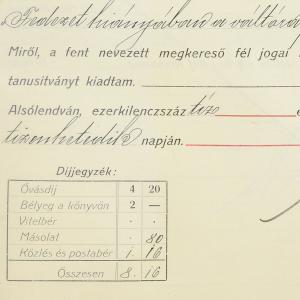 „Fedezet hiányában a váltóra
Miről, a fent nevezett megkereső fél jogai
tanusitványt kiadtam.
Alsólendván, ezerkilenczszáz tíz
tizenhetedik napján.
Díjjegyzék:
Óvásdíj 4 20
Bélyeg a könyvön 2 —
Vitelbér . .
Másolat . 80
Közlés és postabér 1. 16
Összesen 8. 16